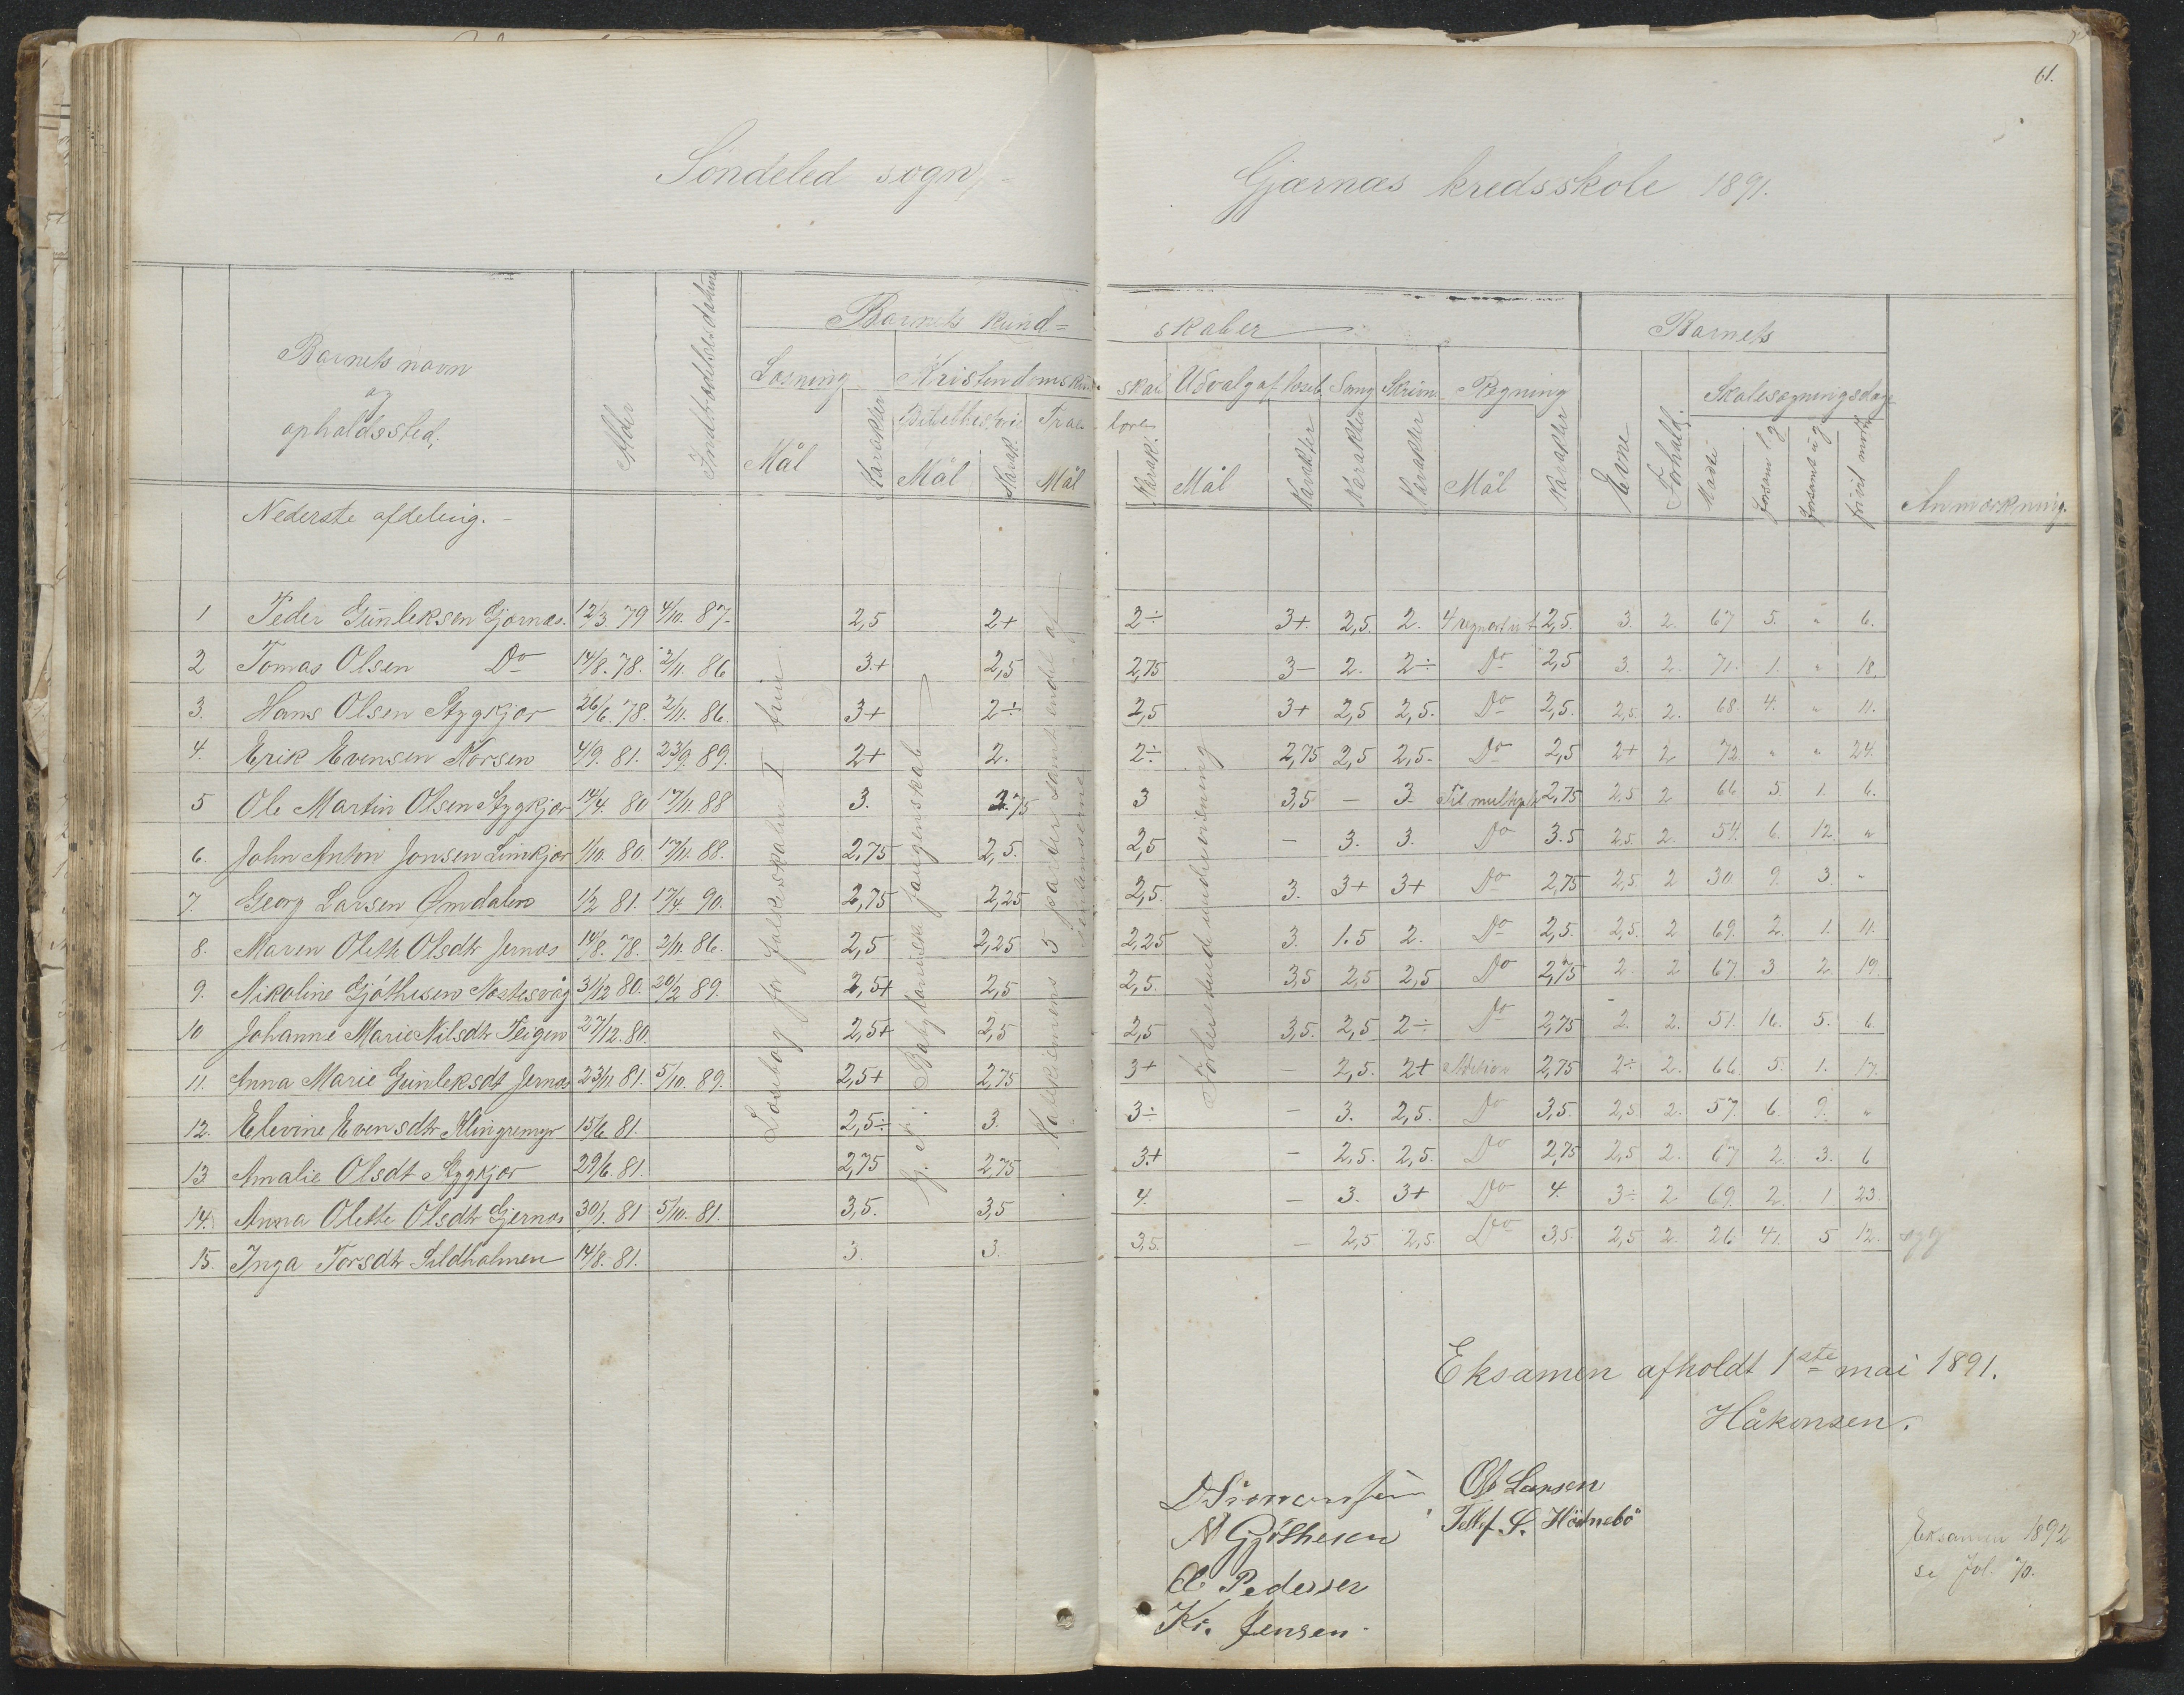 61.
Söndeled sogn,
Gjærnæs kredsskole 1891.
Barnets kund=
skaber
Barnets
Barnets navn
og
opholdssted.
Alder
Indtrædelsesdatum
Læsning
Kristendoms kund-
skab
Udvalg af læseb.
Sang
Skrivn.
Regning
Skolesøgningsdage
Bibelhistorie
Troes-
lære
Mål
Karakter
Mål
Karak.
Mål
Karak.
Mål
Karakter
Karakter
Karakter
Mål
Karakter
Evne
Forhold.
Mødte
forsømt l g
forsømt u g
frivil mødt
Anmærkning.
Nederste afdeling.
Læsebog for folkeskolen I trin.
G. t. Babylonisk fangenskab
Katekismens 5 parter samt endel af
Forberedende undervisning
1 Peder Günleksen Gjernæs. 12/3. 79 4/10. 87. 2,5 2+ 2÷ 3+. 2,5. 2. 4 regnart i t 2,5. 3. 2. 67 5. " 6.
2 Tomas Olsen Do 14/8. 78. 2/11. 86 3.+ 2,5 2,75 3— 2. 2÷ Do 2,5 3. 2. 71. 1. " 18.
3. Hans Olsen Stygkjær 26/6. 78. 2/11. 86. 3+ 2÷ 2,5 3+ 2,5 2,5. Do 2,5. 2,5. 2. 68. 4. " 11.
4. Erik Evensen Korsen 4/9. 81. 23/9. 89. 2+ 2. 2÷ 2,75 2,5 2,5. Do 2,5 2+ 2 72 " " 24.
5 Ole Martin Olsen Stygkjær 14/4. 80 17/11. 88 3. 2.75 3 3,5 — 3. Til multipl. 2,75 2,5 2 66 5 1. 6.
6. John Anton Jonsen Limkjær 1/10. 80. 17/11. 88. 2,75 2,5. 2,5 — 3. 3. Do 3.5 2,5. 2. 54. 6. 12. "
7. Georg Larsen Omdalen 1/2 81. 17/4. 90. 2,75 2,25 2,5. 3. 3+ 3+ Do 2,75 2,5. 2 30 9. 3. "
8. Maren Olette Olsdtr Jernæs 14/8. 78. 2/11. 86. 2,5 2,25 2,25 3. 1.5 2. Do 2,5. 2,5. 2 69. 2. 1. 11.
9. Nikoline Gjöthesen Nostesvåg 31/12 80. 20/2 89. 2,5+ 2,5 2,5. 3,5 2,5 2,5 Do 2,75 2. 2 67 3. 2. 19.
10 Johanne Marie Nilsdtr Teigen 27/12. 80. 2,5+ 2,5 2,5 3,5. 2,5 2÷ Do 2,75 2. 2. 51. 16. 5. 6.
11. Anna Marie Günleksdt Jernæs 23/11 81. 5/10. 89. 2,5+ 2,75 3+ — 2,5. 2+ Adition 2,75 2÷ 2. 66. 5. 1. 17.
12. Elevine Evensdtr Klingremyr 15/6. 81. 2,5÷ 3. 3÷ — 3. 2,5. Do 3,5. 2,5 2. 57. 6. 9. "
13 Amalie Olsdt Stygkjær 29/6. 81. 2,75 2,75 3.+ — 2,5. 2,5. Do 2,75 2,5 2. 67 2. 3. 6
14. Anna Olette Olsdtr Gjernæs 30/1. 81 5/10. 81. 3,5. 3,5 4. — 3. 3+ Do 4. 3÷ 2 69. 2. 1 23.
15. Inga Torsdtr Sildholmen 14/8. 81. 3. 3. 3,5. — 2,5 2,5. Do 3,5 2,5 2. 26 41. 5 12. syg
Eksamen afholdt 1ste mai 1891.
Håkensen.
D Simonsen Ole Larsen
N Gjöthesen Tellef. S. Hödnebö
O Pedersen
Kr. Jensen.
Eksamen 1892
se fol. 70.